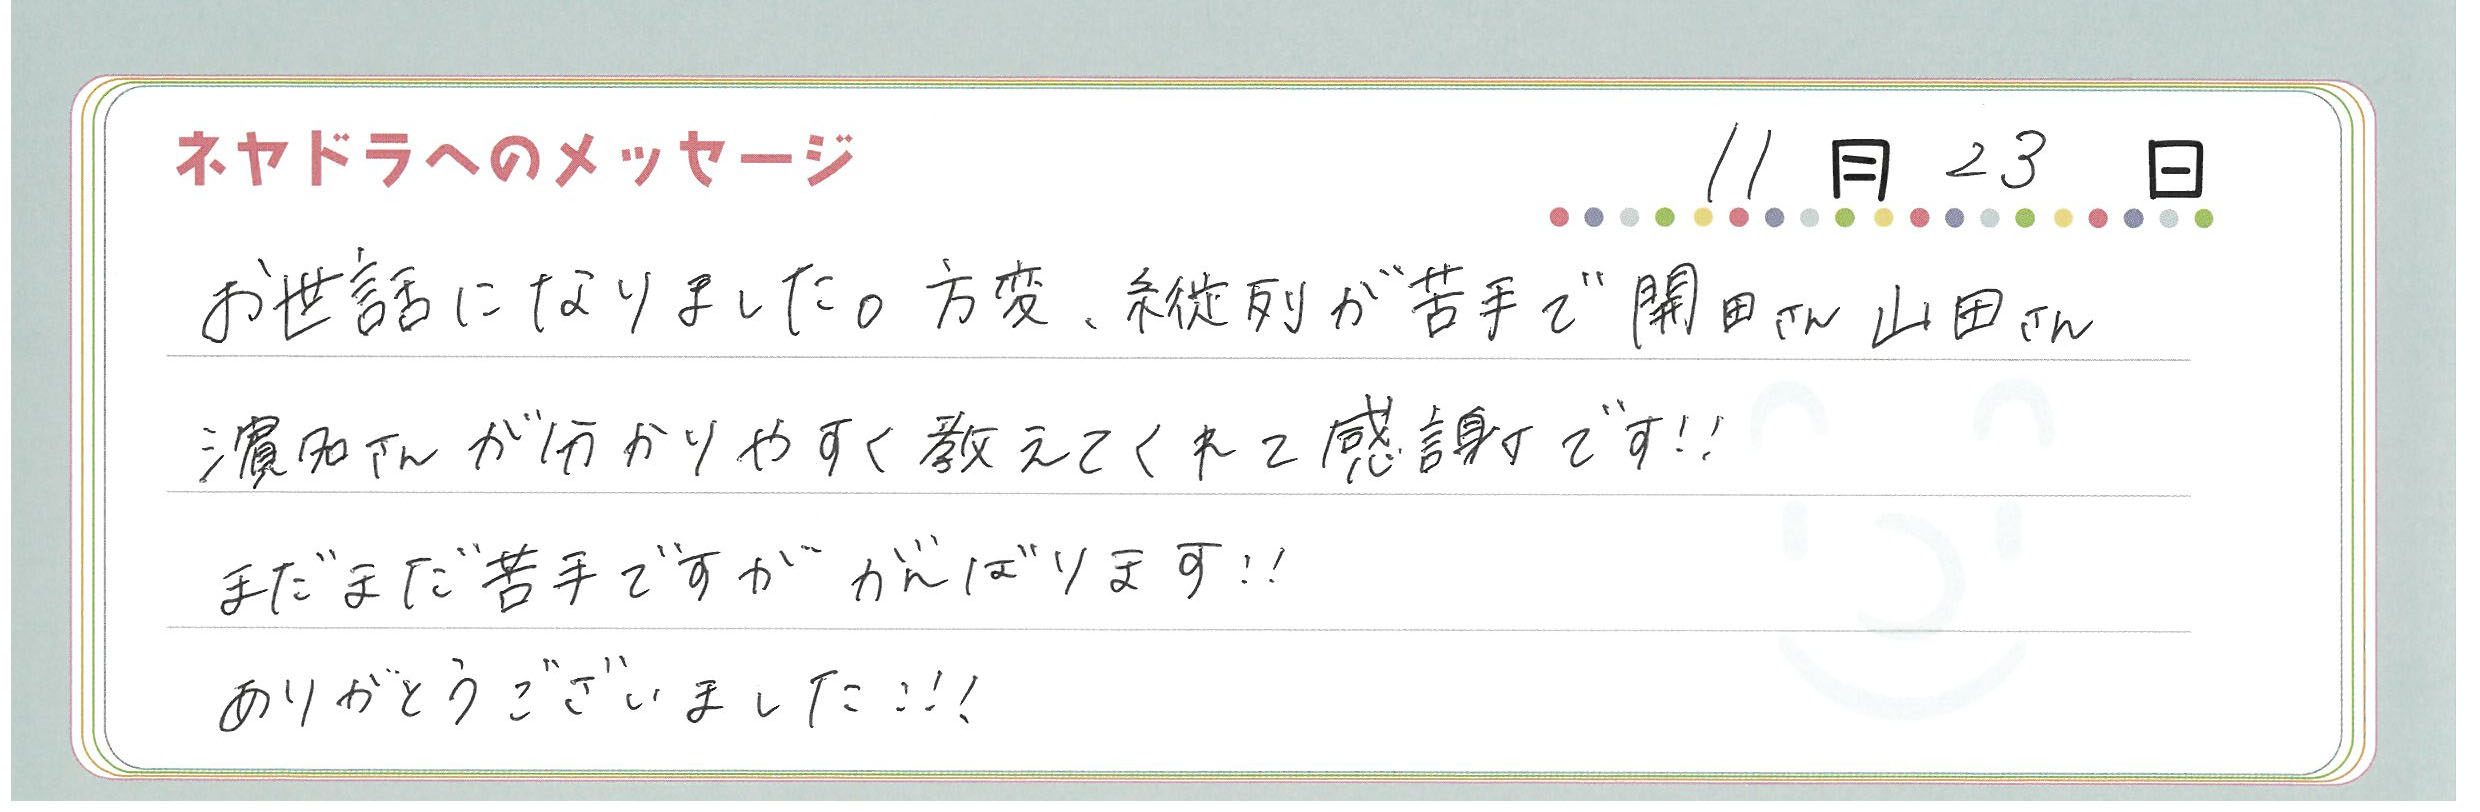 ネヤドラへのメッセージ
11月23日
お世話になりました。方変、縦列が苦手で開田さん山田さん
濱田さんが分かりやすく教えてくれて感謝です!!
まだまだ苦手ですががんばります!!
ありがとうございました!!!